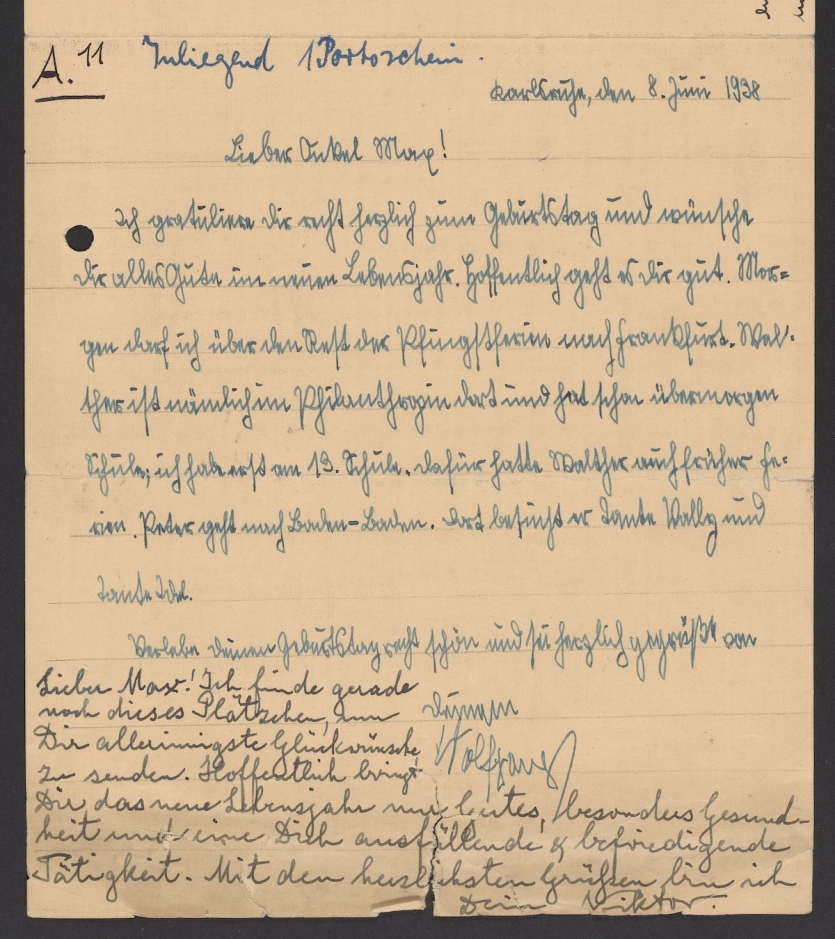 A. 11
Inliegend 1 Portoschein.
Karlsruhe, den 8. Juni 1938
Lieber Onkel Max!
Ich gratuliere dir recht herzlich zum Geburtstag und wünsche
dir alles Gute im neuen Lebensjahr. Hoffentlich geht es dir gut. Mor=
gen darf ich über den Rest der Pfingstferien nach Frankfurt. Wal-
ther ist nämlich im Philanthropin dort und hat schon übermorgen
Schule; ich habe erst am 13. Schule. Dafür hatte Walther auch früher Fe=
rien. Peter geht nach Baden-Baden. Dort besucht er Tante Vally und
Tante Idel.
Verlebe deinen Geburtstag recht schön und sei herzlich gegrüßt von
deinem
Wolfgang
Lieber Max! Ich finde gerade
noch dieses Plätzchen, um
Dir allerinnigste Glückwünsche
zu senden. Hoffentlich bringt
Dir das neue Lebensjahr nur Gutes, besonders Gesund-
heit und eine Dich ausfüllende & befriedigende
Tätigkeit. Mit den herzlichsten Grüßen bin ich
Dein Viktor.